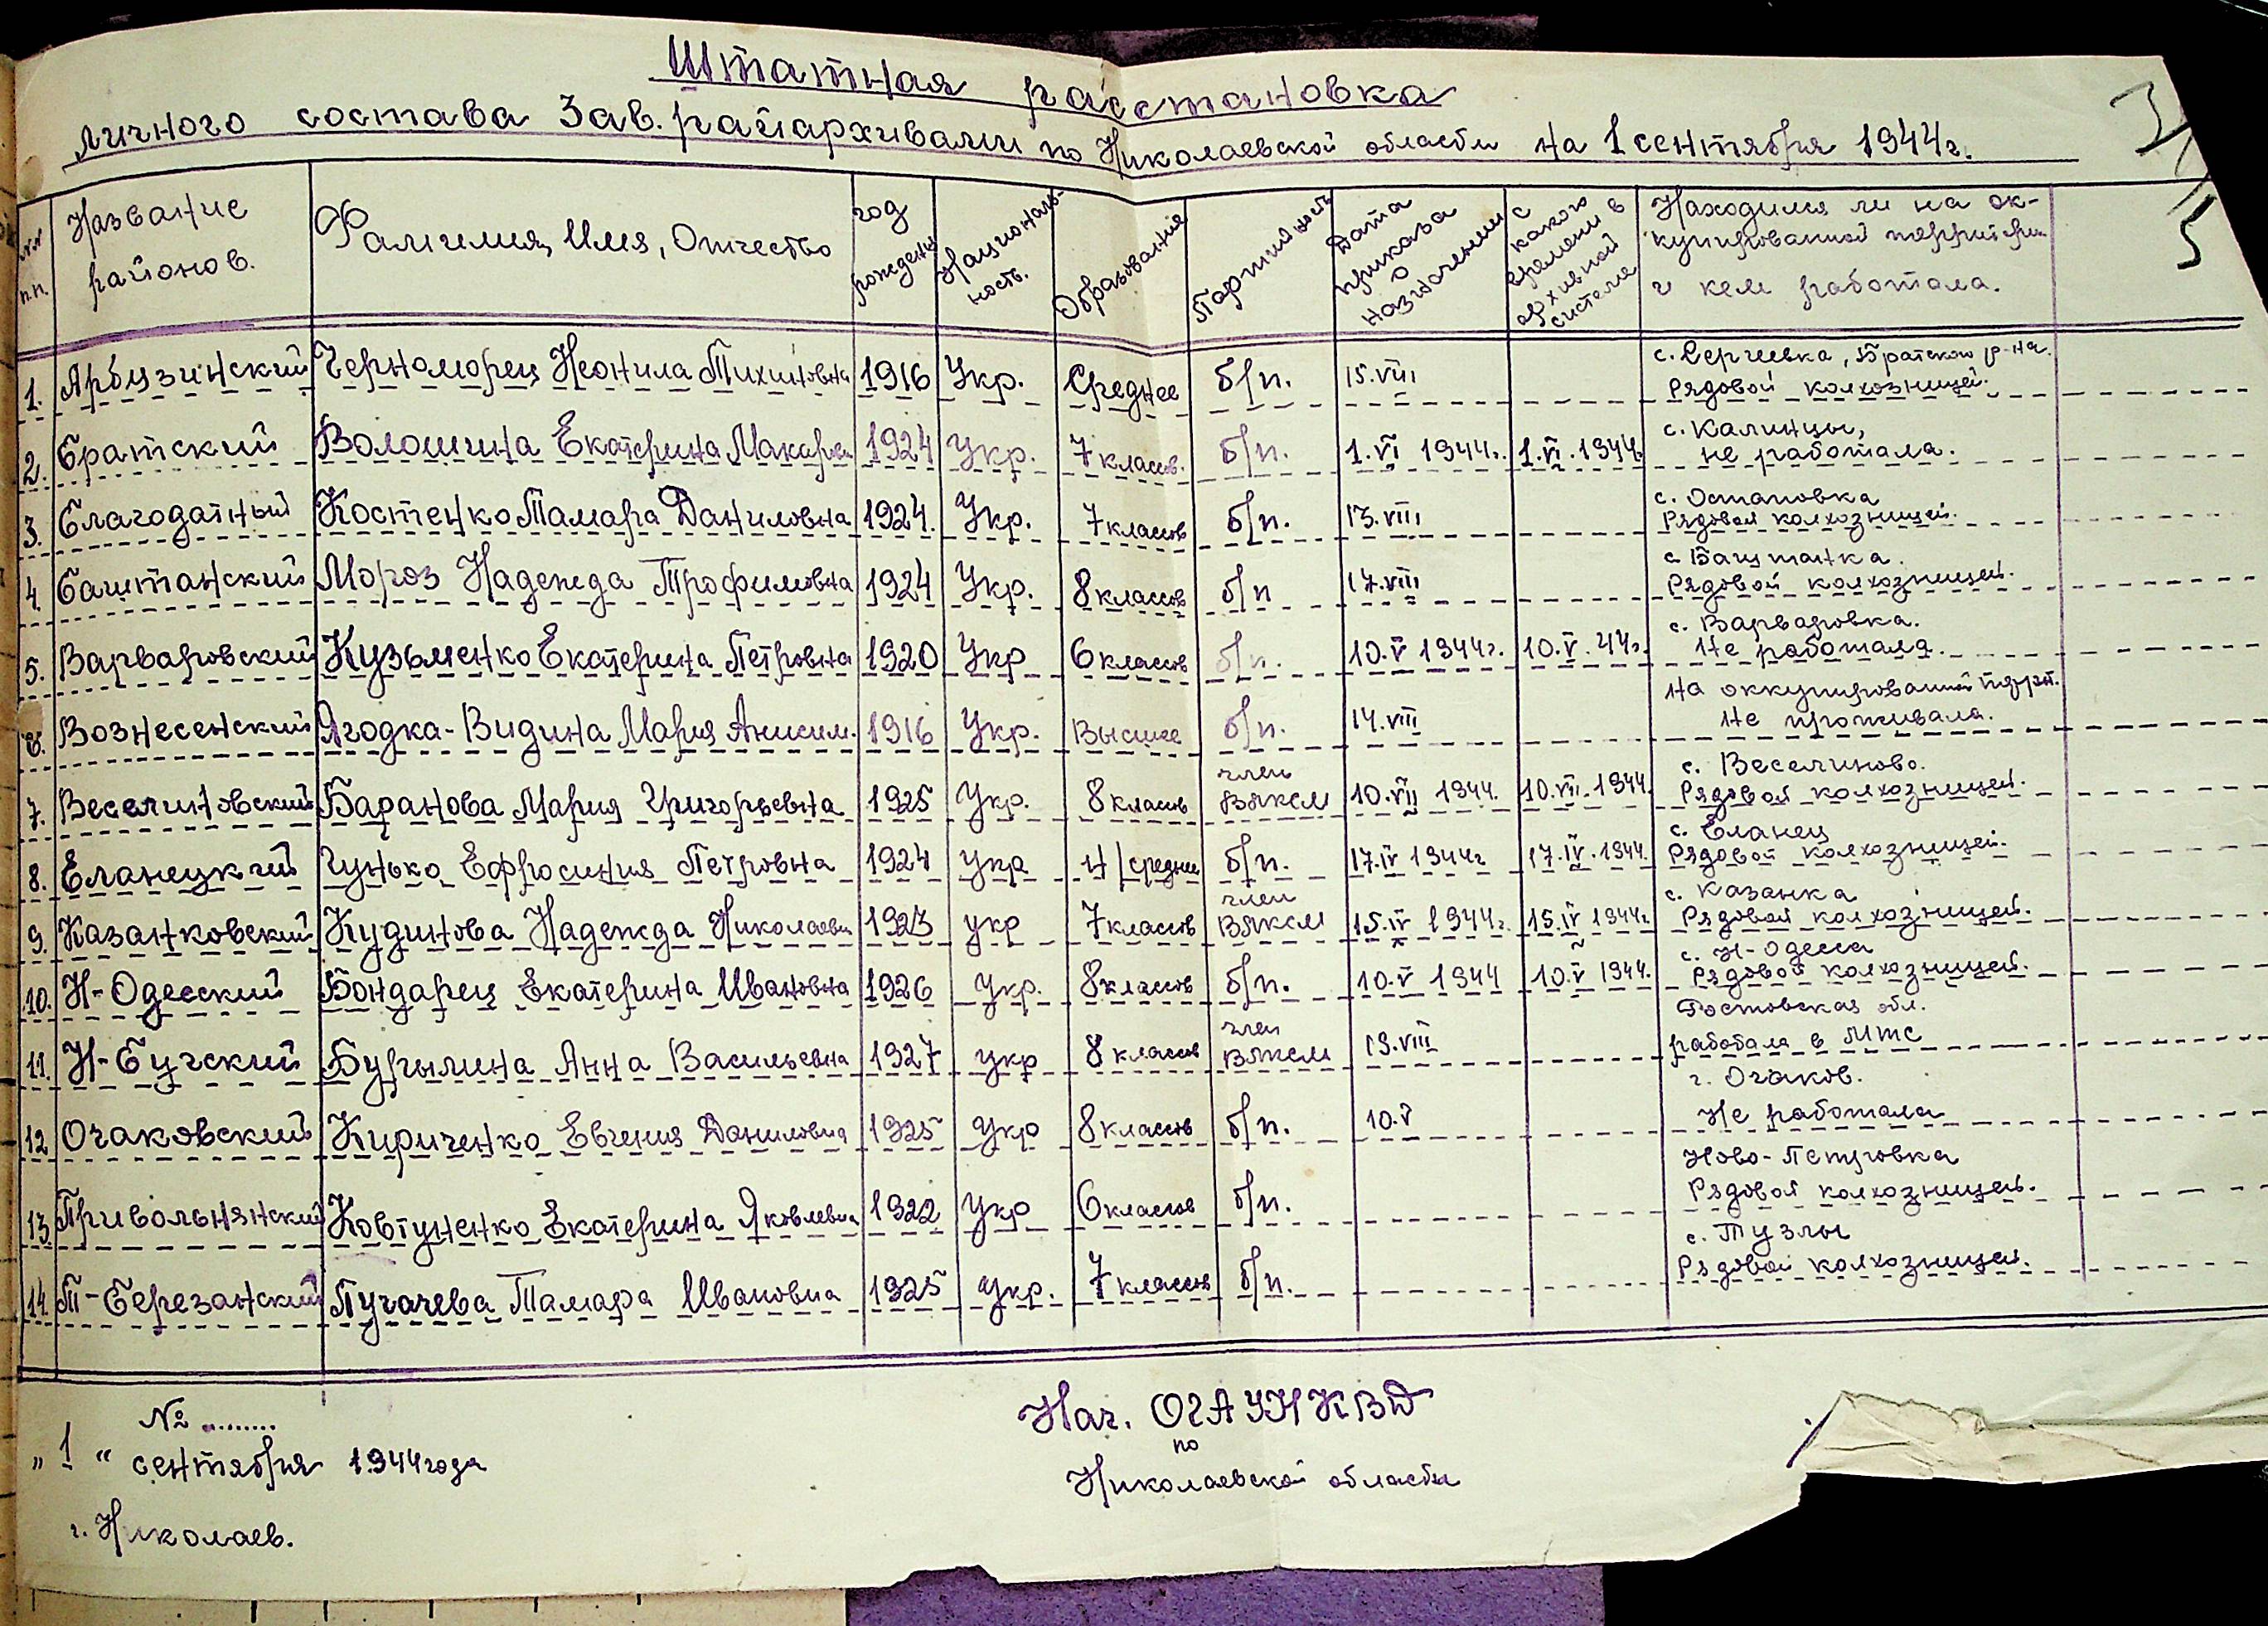 Штатная расстановка
личного состава Зав. райархивами по Николаевской области на 1 сентября 1944г.
3
5
№№ п.п. Название районов. Фамилия, Имя, Отчество год рождения Национальность. Образования Партийность Дата приказа о назначении с какого времени в архивной системе Находился ли на оккупированной территории и кем работала.
с. Сергеевка, Братского р-на.
1. Арбузинский Черноморец Неонила Тихоновна 1916 Укр. Среднее б/п. 15.VIII Рядовой колхозницей.
с. Калинцы,
2. Братский Волошина Екатерина Макаров 1924 Укр. 7 классов. б/п. 1.VI 1944г. 1.VI.1944. не работала.
с. Остаповка
3. Благодатный Костенко Тамара Даниловна 1924. Укр. 7 классов б/п. 13.VIII Рядовой колхозницей.
с Баштанка.
4. Баштанский Мороз Надежда Трофимовна 1924 Укр. 8 классов б/п 17.VIII Рядовой колхозницей.
с. Варваровка.
5. Варваровский Кузьменко Екатерина Петровна 1920 Укр 6 классов б/п. 10.V 1944г. 10.V.44г. Не работала.
на оккупированной террит.
6. Вознесенский Ягодка-Видина Мария Анисим. 1916 Укр. Высшее б/п. 14.VIII Не проживала.
член с. Веселиново.
7. Веселиновский Баранова Мария Григорьевна 1925 Укр. 8 классов ВЛКСМ 10.VII 1944. 10.VII.1944 Рядовой колхозницей.
с. Еланец
8. Еланецкий Чунько Ефросиния Петровна 1924 Укр н/средне б/п. 17.IV 1944г 17.IV.1944. Рядовой колхозницей.
член с. Казанка
9. Казанковский Кудинова Надежда Николаевн 1923 укр 7 классов ВЛКСМ 15.IV 1944г. 15.IV 1944г. Рядовой колхозницей.
с. Н-Одесса
10. Н-Одесский Бондарец Екатерина Ивановна 1926 Укр. 8 классов б/п. 10.V 1944 10.V 1944. Рядовой колхозницей.
член Ростовская обл.
11. Н-Бугский Бурылина Анна Васильевна 1927 укр 8 классов ВЛКСМ 19.VIII работала в МТС
г. Очаков.
12 Очаковский Кириченко Евгения Даниловна 1925 Укр 8 классов б/п. 10.V Не работала
Ново-Петровка
13. Привольнянский Ковтуненко Екатерина Яковлевна 1922 Укр 6 классов б/п. Рядовой колхозницей.
с. Тузлы
14. Т-Березанский Пугачева Тамара Ивановна 1925 Укр. 7 классов б/п. Рядовой колхозницей.
№ .........
„1“ сентября 1944 года
г. Николаев.
Нач. ОГА УНКВД
по
Николаевской области